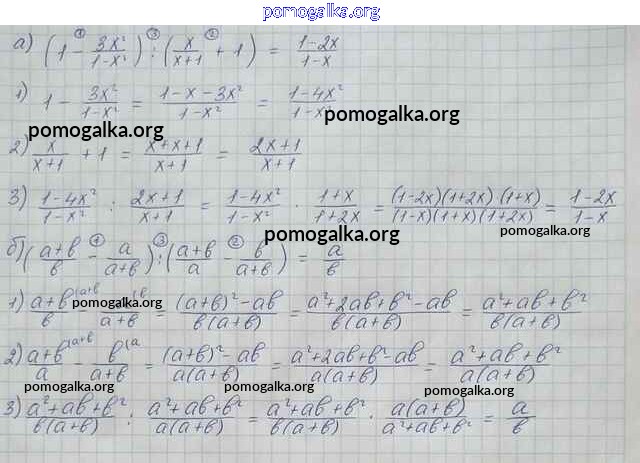 pomogalka.org
а) (1 - 3x²/(1-x²)) : (x/(x+1) + 1) = (1-2x)/(1-x)
1) 1 - 3x²/(1-x²) = (1-x-3x²)/(1-x²) = (1-4x²)/(1-x²)
pomogalka.org
pomogalka.org
2) x/(x+1) + 1 = (x+x+1)/(x+1) = (2x+1)/(x+1)
3) (1-4x²)/(1-x²) : (2x+1)/(x+1) = (1-4x²)/(1-x²) · (1+x)/(1+2x) = (1-2x)(1+2x)(1+x)/(1-x)(1+x)(1+2x) = (1-2x)/(1-x)
pomogalka.org
pomogalka.org
б) ((a+b)/b - a/(a+b)) : ((a+b)/a - b/(a+b)) = a/b
1) (a+b)/b - a/(a+b) = ((a+b)²-ab)/(b(a+b)) = (a²+2ab+b²-ab)/(b(a+b)) = (a²+ab+b²)/(b(a+b))
pomogalka.org
pomogalka.org
pomogalka.org
2) (a+b)/a - b/(a+b) = ((a+b)²-ab)/(a(a+b)) = (a²+2ab+b²-ab)/(a(a+b)) = (a²+ab+b²)/(a(a+b))
pomogalka.org
pomogalka.org
pomogalka.org
3) (a²+ab+b²)/(b(a+b)) : (a²+ab+b²)/(a(a+b)) = (a²+ab+b²)/(b(a+b)) · a(a+b)/(a²+ab+b²) = a/b